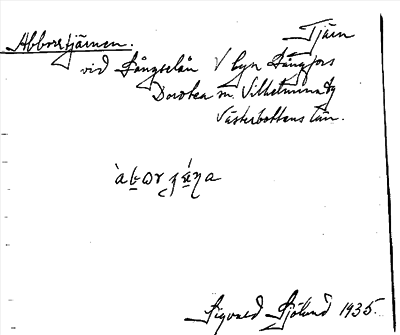 Abborrtjärnen.
Tjärn
vid Långselån V byn Långfors
Dorotea m. Vilhelmina tg
Västerbottens län.
Sigvard Sjölund 1935.